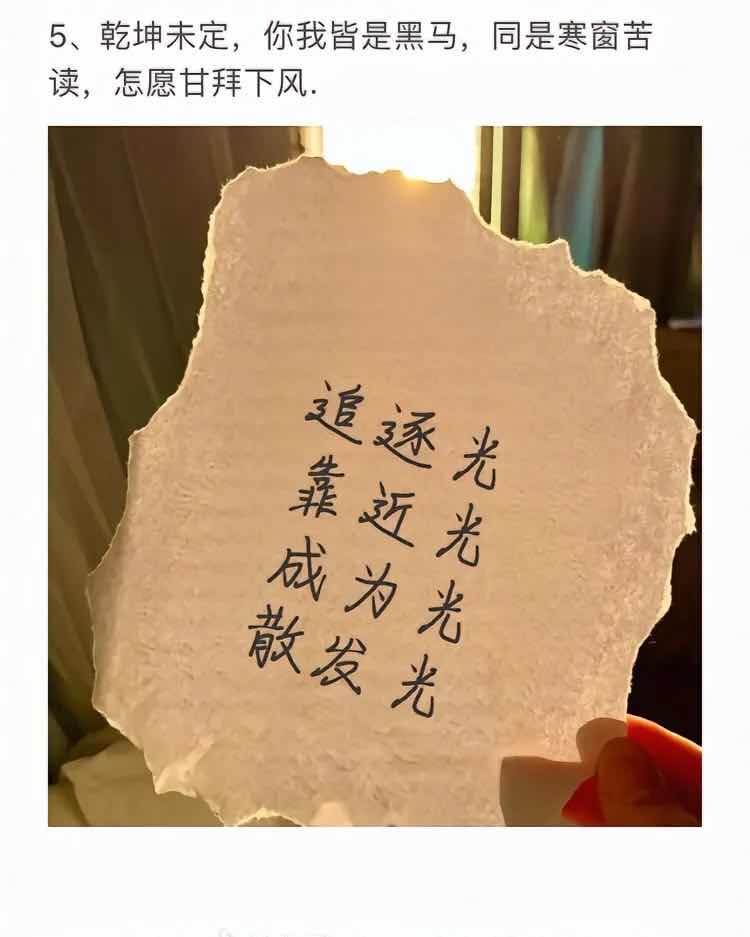 5、乾坤未定，你我皆是黑马，同是寒窗苦
读，怎愿甘拜下风.
追逐光
靠近光
成为光
散发光